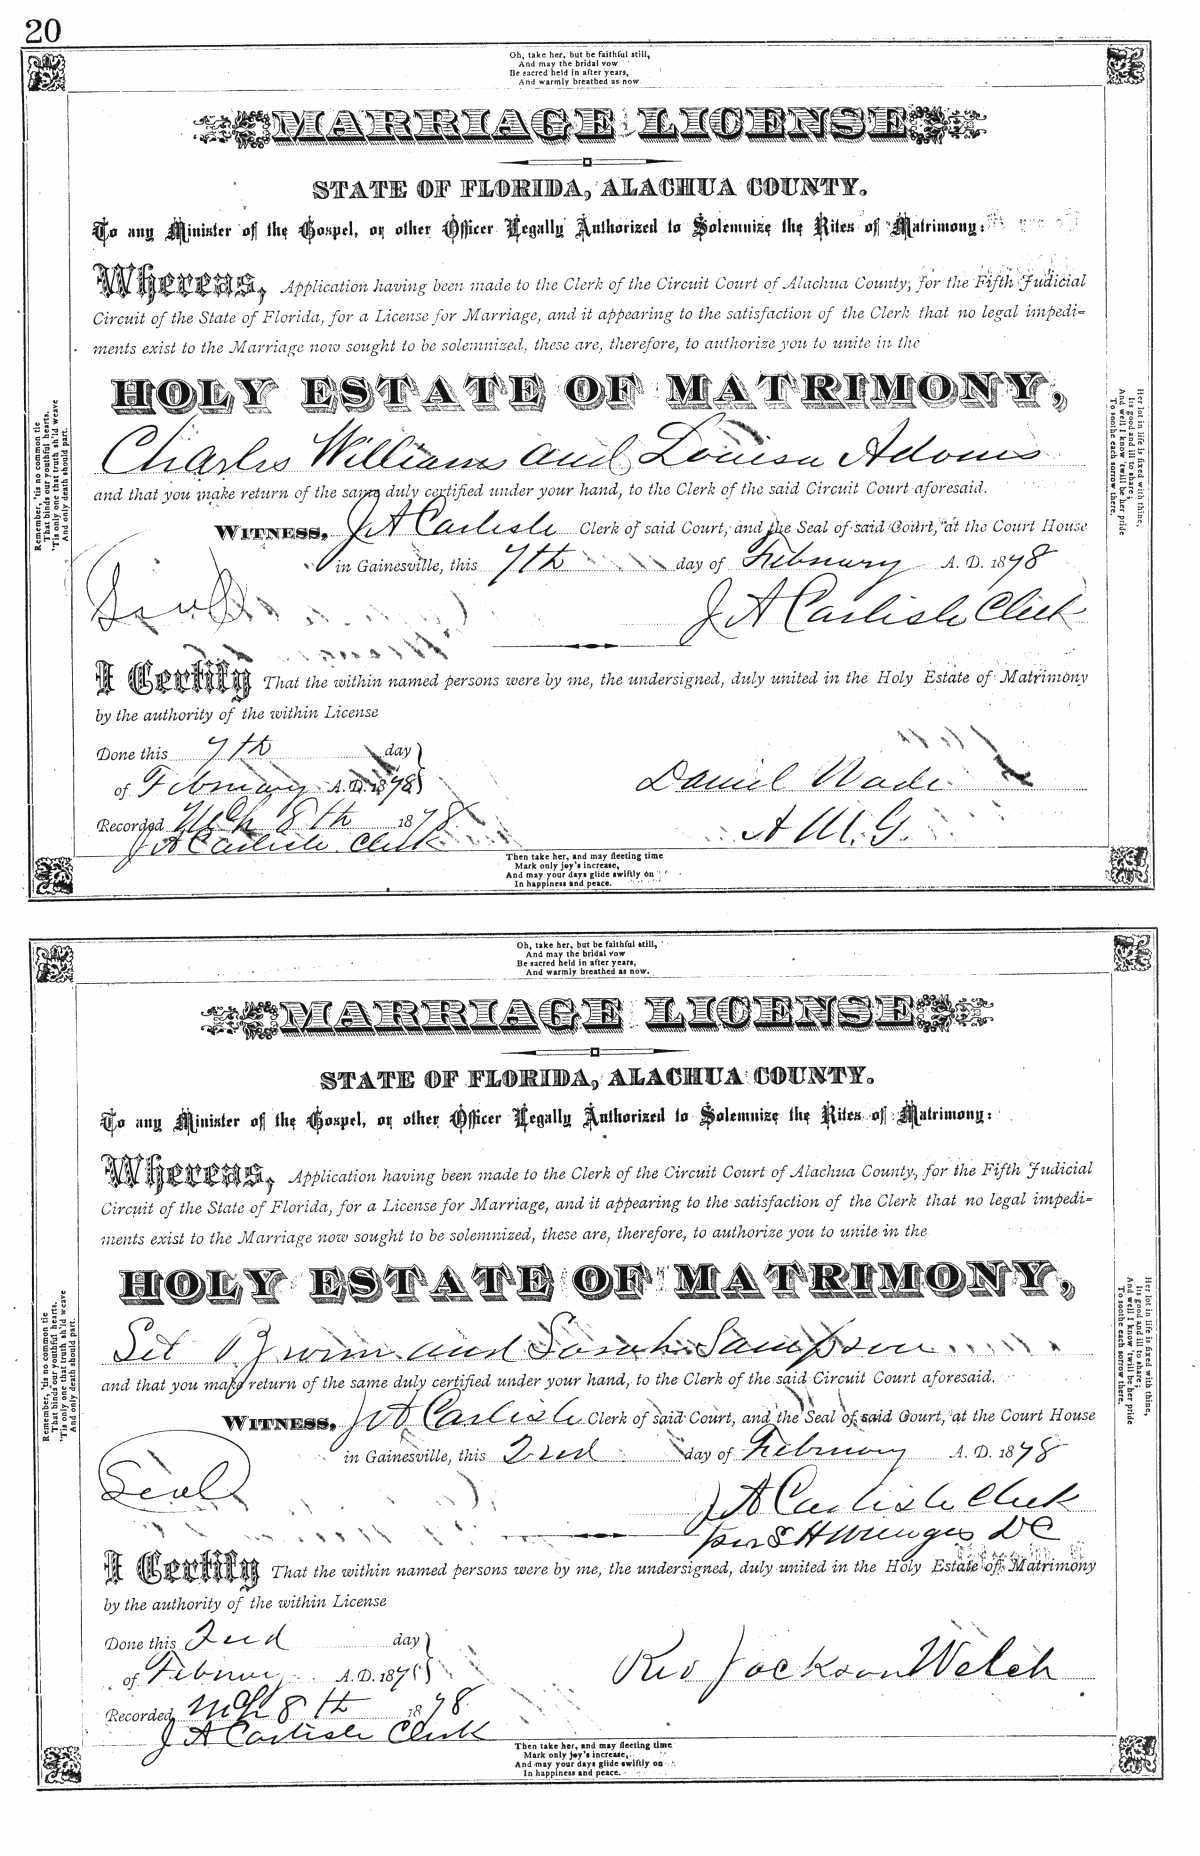 20
Oh, take her, but be faithful still,
And may the bridal vow
Be sacred held in after years,
And warmly breathed as now
MARRIAGE LICENSE
STATE OF FLORIDA, ALACHUA COUNTY.
To any Minister of the Gospel, or other Officer Legally Authorized to Solemnize the Rites of Matrimony:
Whereas, Application having been made to the Clerk of the Circuit Court of Alachua County, for the Fifth Judicial
Circuit of the State of Florida, for a License for Marriage, and it appearing to the satisfaction of the Clerk that no legal impedi=
ments exist to the Marriage now sought to be solemnized, these are, therefore, to authorize you to unite in the
HOLY ESTATE OF MATRIMONY,
Charles Williams and Louisa Adams
and that you make return of the same duly certified under your hand, to the Clerk of the said Circuit Court aforesaid.
WITNESS, J A Carlisle Clerk of said Court, and the Seal of said Court, at the Court House
in Gainesville, this 7th day of February A. D. 1878
Seal
J A Carlisle Clerk
I Certify That the within named persons were by me, the undersigned, duly united in the Holy Estate of Matrimony
by the authority of the within License
Done this 7th day
of February A. D. 1878
Daniel Wade
Recorded Mch 8th 1878
A M. G.
J A Carlisle Clerk
Then take her, and may fleeting time
Mark only joy's increase,
And may your days glide swiftly on
In happiness and peace.
Remember, 'tis no common tie
That binds our youthful hearts,
'Tis only one that truth sh'ld weave
And only death should part.
Her lot in life is fixed with thine,
Its good and ill to share;
And well I know 'twill be her pride
To soothe each sorrow there.
Oh, take her, but be faithful still,
And may the bridal vow
Be sacred held in after years,
And warmly breathed as now.
MARRIAGE LICENSE
STATE OF FLORIDA, ALACHUA COUNTY.
To any Minister of the Gospel, or other Officer Legally Authorized to Solemnize the Rites of Matrimony:
Whereas, Application having been made to the Clerk of the Circuit Court of Alachua County, for the Fifth Judicial
Circuit of the State of Florida, for a License for Marriage, and it appearing to the satisfaction of the Clerk that no legal impedi=
ments exist to the Marriage now sought to be solemnized, these are, therefore, to authorize you to unite in the
HOLY ESTATE OF MATRIMONY,
and Sarah Sampson
and that you make return of the same duly certified under your hand, to the Clerk of the said Circuit Court aforesaid.
WITNESS, J A Carlisle Clerk of said Court, and the Seal of said Court, at the Court House
in Gainesville, this 2nd day of February A. D. 1878
Seal
J A Carlisle Clerk
per S H DC
I Certify That the within named persons were by me, the undersigned, duly united in the Holy Estate of Matrimony
by the authority of the within License
Done this 2nd day
of February A. D. 187
Rev Jackson Welch
Recorded Mch 8th 1878
J A Carlisle Clerk
Then take her, and may fleeting time
Mark only joy's increase,
And may your days glide swiftly on
In happiness and peace.
Remember, 'tis no common tie
That binds our youthful hearts,
'Tis only one that truth sh'ld weave
And only death should part.
Her lot in life is fixed with thine,
Its good and ill to share;
And well I know 'twill be her pride
To soothe each sorrow there.